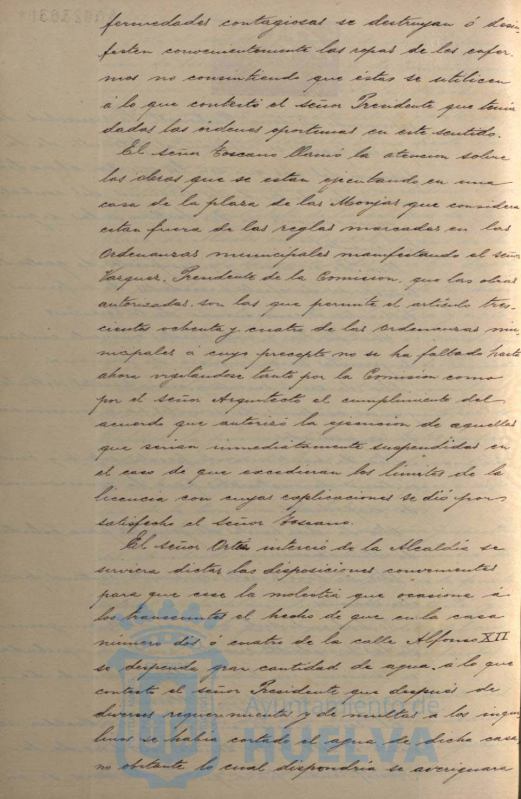 fermedades contagiosas se destruyan ó desin-
festen convenientemente las ropas de los enfer-
mos no consintiendo que éstas se utilicen
á lo que contestó el señor Presidente que tenia
dadas las órdenes oportunas en este sentido.
El señor Toscano llamó la atencion sobre
las obras que se estan ejecutando en una
casa de la plaza de las Monjas que considera
estan fuera de las reglas marcadas en las
Ordenanzas municipales manifestando el señor
Vazquez, Presidente de la Comision, que las obras
autorizadas son las que permite el artículo tres-
cientos ochenta y cuatro de las Ordenanzas mu-
nicipales á cuyo precepto no se ha faltado hasta
ahora vigilandose tanto por la Comision como
por el señor Arquitecto el cumplimiento del
acuerdo que autorizó la ejecucion de aquellas
que serian inmediatamente suspendidas en
el caso de que excedieran los límites de la
licencia con cuyas explicaciones se dió por
satisfecho el señor Toscano.
El señor interesó de la Alcaldía se
sirviera dictar las disposiciones convenientes
para que cese la molestia que ocasiona á
los transeuntes el hecho de que en la casa
número dós ó cuatro de la calle Alfonso XII
se desprenda gran cantidad de agua, á lo que
contestó el señor Presidente que después de
diversos requerimientos y de multas a los inqui-
linos se habia cortado el agua de dicha casa
no obstante lo cual dispondría se averiguara
Ayuntamiento de
HUELVA